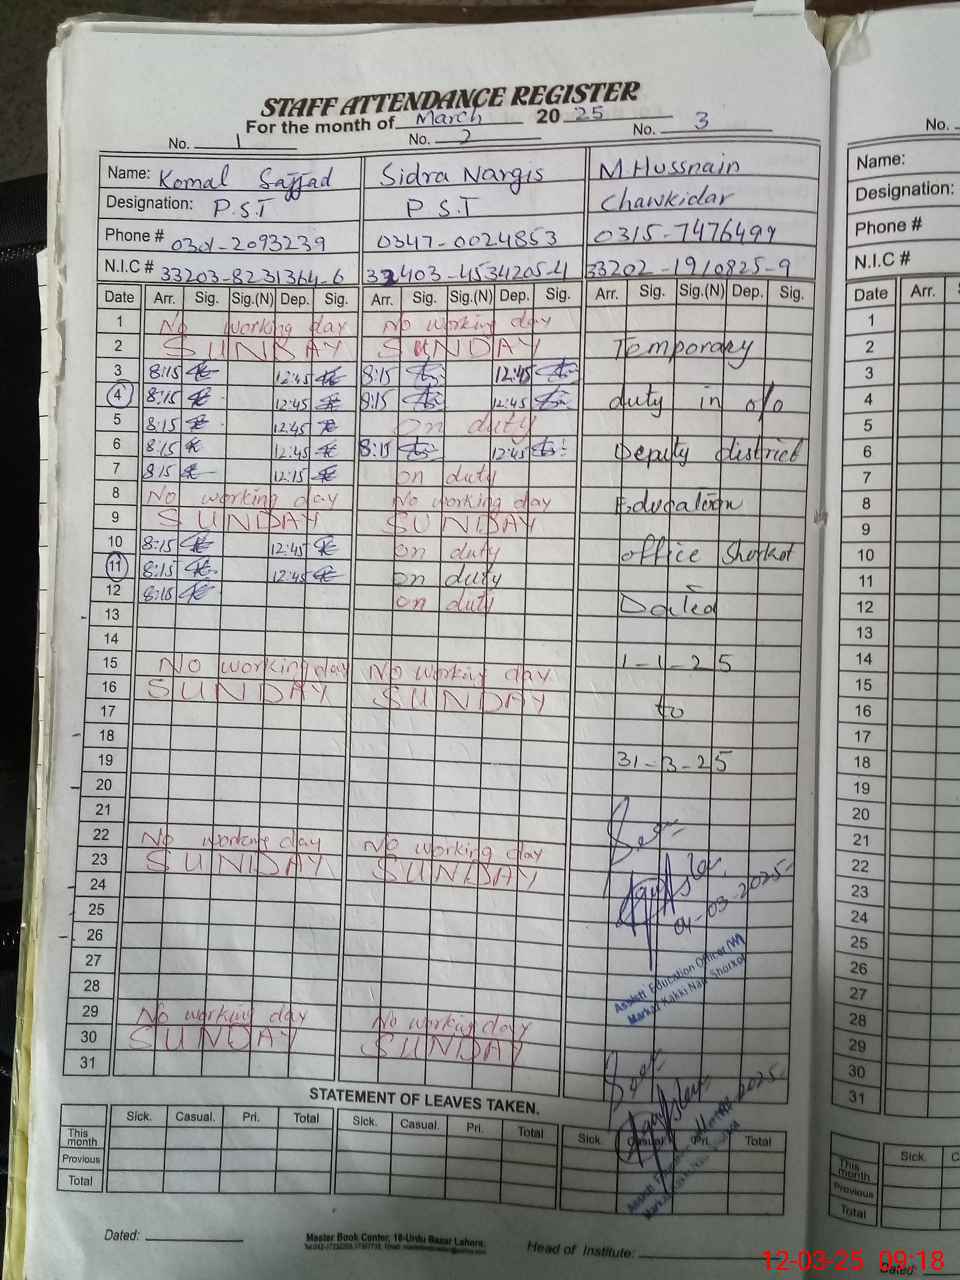 STAFF ATTENDANCE REGISTER
For the month of March 2025
No. 1 No. 2 No. 3
Name: Komal Sajjad Sidra Nargis M.Hussnain
Designation: P.S.T P.S.T Chawkidar
Phone # 0301-2093239 0347-0024853 0315-7476499
N.I.C # 33203-8231364-6 33403-4534205-4 33202-1910825-9
Date Arr. Sig. Sig.(N) Dep. Sig. Arr. Sig. Sig.(N) Dep. Sig. Arr. Sig. Sig.(N) Dep. Sig.
1 No working day No working day
2 SUNDAY SUNDAY Temporary
3 8:15 12:45 8:15 12:45
4 8:15 12:45 8:15 12:45 duty in o/o
5 8:15 12:45 on duty
6 8:15 12:45 8:15 12:45 Deputy district
7 8:15 12:15 on duty
8 No working day No working day Education
9 SUNDAY SUNDAY
10 8:15 12:45 on duty office Shorkot
11 8:15 12:45 on duty
12 8:15 on duty Dated
13
14
15 No working day No working day 1-1-25
16 SUNDAY SUNDAY
17 to
18
19 31-3-25
20
21
22 No working day No working day
23 SUNDAY SUNDAY
24
25 04-03-2025
26
27
28 Assistt Education Officer (W)
29 No working day No working day Markaz Kakki Nau Shorkot
30 SUNDAY SUNDAY
31
STATEMENT OF LEAVES TAKEN.
Sick. Casual. Pri. Total Sick. Casual. Pri. Total Sick. Casual. Pri. Total
This month
Previous
Total
Dated: Master Book Center, 18-Urdu Bazar Lahore. Head of Institute:
No.
Name:
Designation:
Phone #
N.I.C #
Date Arr.
1
2
3
4
5
6
7
8
9
10
11
12
13
14
15
16
17
18
19
20
21
22
23
24
25
26
27
28
29
30
31
Sick.
This month
Previous
Total
Dated:
12-03-25 09:18